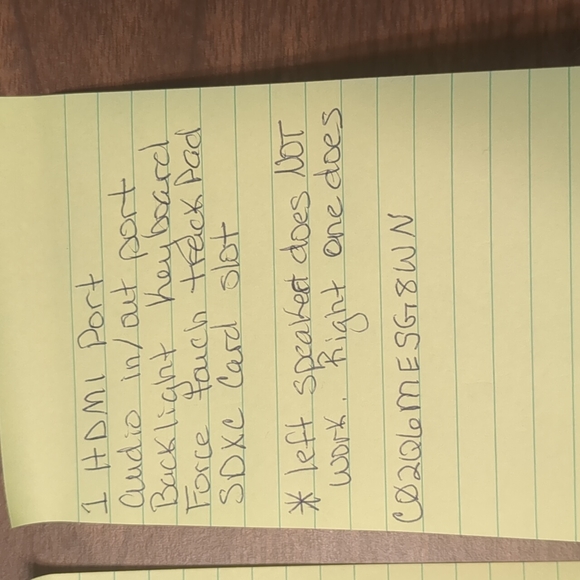 1 HDMI Port
audio in/out port
Backlight keyboard
Force touch trackpad
SDXC Card slot
* left speaker does NOT
work. Right one does
C02Q6MESG8WN